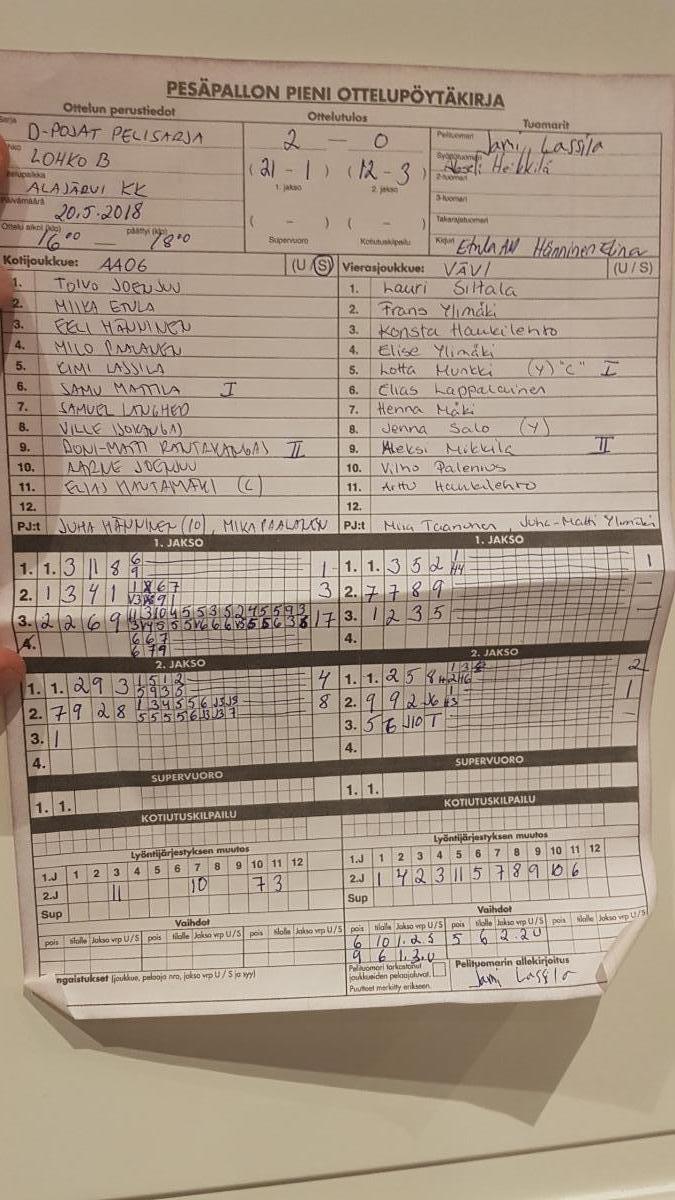 PESÄPALLON PIENI OTTELUPÖYTÄKIRJA
Ottelun perustiedot
D-POJAT PELISARJA
LOHKO B
ALAJÄRVI KK
Päivämäärä
20.5.2018
Ottelu alkoi (klo) päättyi (klo)
16⁰⁰ — 18⁰⁰
Ottelutulos
2 — 0
(21 - 1) (12 - 3)
1. jakso 2. jakso
( - ) ( - )
Supervuoro Kotiutuskilpailu
Tuomarit
Pelituomari Jami Lassila
Syöttötuomari Heikkilä
2-tuomari
3-tuomari
Takarajatuomari
Kirjuri Etula AM Hänninen Elina
Kotijoukkue: AA06 (U / S)
1. TOIVO JOENJUU
2. MIIKA ETULA
3. EELI HÄNNINEN
4. MILO PAALANEN
5. KIMI LASSILA
6. SAMU MATTILA I
7. SAMUEL
8. VILLE ISOKANGAS
9. RONI-MATTI RANTAKANGAS II
10. AARNE JOENJUU
11. ELIAS HAUTAMÄKI (C)
12.
PJ:t JUHA HÄNNINEN (10), MIKA PAALANEN
Vierasjoukkue: VÄVI (U / S)
1. Lauri Siltala
2. Frans Ylimäki
3. Konsta Haukilehto
4. Elise Ylimäki
5. Lotta Munkki (Y) "C" I
6. Elias Lappalainen
7. Henna Mäki
8. Jenna Salo (Y)
9. Aleksi Mikkilä II
10. Vilho Palenius
11. Arttu Haukilehto
12.
PJ:t Miia Taanonen, Juha-Matti Ylimäki
1. JAKSO
1. 1. 3 11 8 6 1
9
2. 1 3 4 1 3
3. 2 2 6 9 17
4. 6 6 7
6 7 9
1. JAKSO
1. 1. 3 5 2 1
2. 7 7 8 9 —
3. 1 2 3 5 —
4.
2. JAKSO
1. 1. 2 9 3 1 5 1 2 4
5 9 3 5
2. 7 9 2 8 8
3. 1
4.
2. JAKSO
1. 1. 2 5 8 2
2. 9 9 2 1
3. 5 6 J10 T —
4.
SUPERVUORO
1. 1.
KOTIUTUSKILPAILU
SUPERVUORO
1. 1.
KOTIUTUSKILPAILU
Lyöntijärjestyksen muutos
1.J 1 2 3 4 5 6 7 8 9 10 11 12
2.J 11 10 7 3
Sup
Vaihdot
pois tilalle Jakso vrp U/S pois tilalle Jakso vrp U/S pois tilalle Jakso vrp U/S
Lyöntijärjestyksen muutos
1.J 1 2 3 4 5 6 7 8 9 10 11 12
2.J 1 4 2 3 11 5 7 8 9 10 6
Sup
Vaihdot
pois tilalle Jakso vrp U/S pois tilalle Jakso vrp U/S pois tilalle Jakso vrp U/S
6 10 1.2.S 5 6 2.2U
9 6 1.3.U
ngaistukset (joukkue, pelaaja nro, jakso vrp U / S ja syy)
Pelituomari tarkastanut
joukkueiden pelaajaluvat.
Puutteet merkitty erikseen.
Pelituomarin allekirjoitus
Jami Lassila